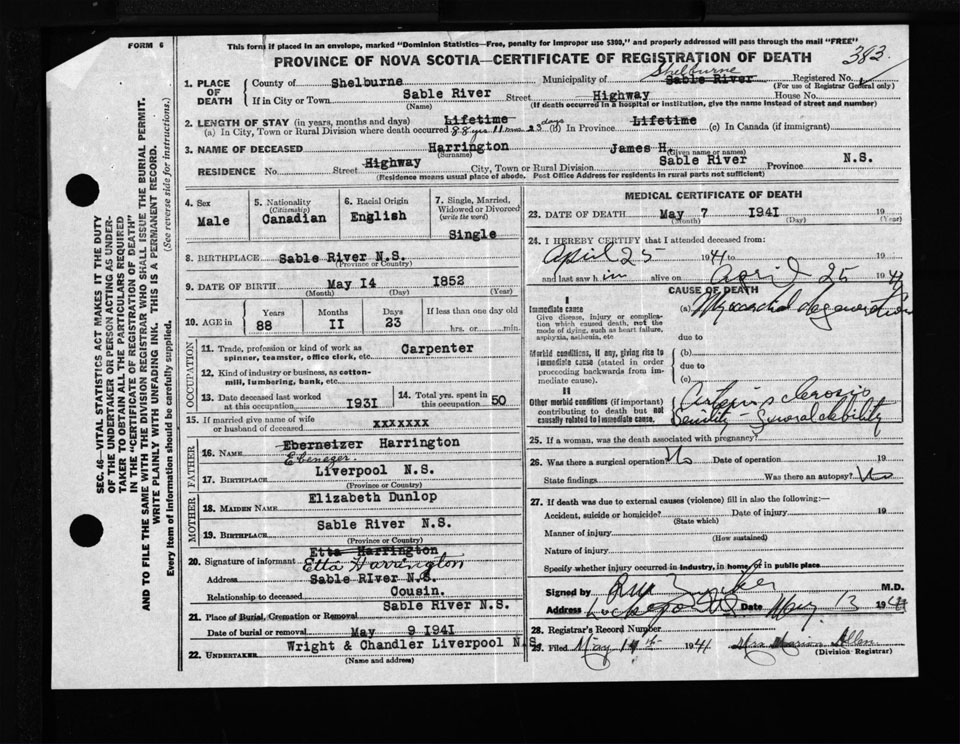 FORM 6
This form if placed in an envelope, marked "Dominion Statistics—Free, penalty for improper use $300," and properly addressed will pass through the mail "FREE"
PROVINCE OF NOVA SCOTIA—CERTIFICATE OF REGISTRATION OF DEATH
383
SEC. 46—VITAL STATISTICS ACT MAKES IT THE DUTY
OF THE UNDERTAKER OR PERSON ACTING AS UNDER-
TAKER TO OBTAIN ALL THE PARTICULARS REQUIRED
IN THE "CERTIFICATE OF REGISTRATION OF DEATH"
AND TO FILE THE SAME WITH THE DIVISION REGISTRAR WHO SHALL ISSUE THE BURIAL PERMIT.
WRITE PLAINLY WITH UNFADING INK. THIS IS A PERMANENT RECORD.
Every item of information should be carefully supplied. (See reverse side for instructions.)
1. PLACE OF DEATH
County of Shelburne Municipality of Sable River Shelburne Registered No. ✓
(For use of Registrar General only)
If in City or Town Sable River Street Highway House No.
(Name) (If death occurred in a hospital or institution, give the name instead of street and number)
2. LENGTH OF STAY (in years, months and days) Lifetime Lifetime
(a) In City, Town or Rural Division where death occurred 88 yrs 11 mos 23 days (b) In Province (c) In Canada (if immigrant)
3. NAME OF DECEASED Harrington James H.
(Surname) (Given name or names)
RESIDENCE No. Street Highway City, Town or Rural Division Sable River Province N.S.
(Residence means usual place of abode. Post Office Address for residents in rural parts not sufficient)
4. Sex
Male
5. Nationality
(Citizenship)
Canadian
6. Racial Origin
English
7. Single, Married,
Widowed or Divorced
(write the word)
Single
8. BIRTHPLACE Sable River N.S.
(Province or Country)
9. DATE OF BIRTH May 14 1852
(Month) (Day) (Year)
10. AGE in
Years Months Days If less than one day old
88 II 23 hrs. or min.
OCCUPATION
11. Trade, profession or kind of work as Carpenter
spinner, teamster, office clerk, etc.
12. Kind of industry or business, as cotton-
mill, lumbering, bank, etc.
13. Date deceased last worked
at this occupation I93I
14. Total yrs. spent in
this occupation 50
15. If married give name of wife
or husband of deceased xxxxxxx
FATHER
16. NAME Eberneizer Harrington
Ebenezer
17. BIRTHPLACE Liverpool N.S.
(Province or Country)
MOTHER
18. MAIDEN NAME Elizabeth Dunlop
19. BIRTHPLACE Sable River N.S.
(Province or Country)
Etta Harrington
20. Signature of informant Etta Harrington
Address Sable RIver N.S.
Relationship to deceased Cousin.
21. Place of Burial, Cremation or Removal Sable River N.S.
Date of burial or removal May 9 I94I
22. UNDERTAKER Wright & Chandler Liverpool N.S.
(Name and address)
MEDICAL CERTIFICATE OF DEATH
23. DATE OF DEATH May 7 I94I 19
(Month) (Day) (Year)
24. I HEREBY CERTIFY that I attended deceased from:
April 25 1941 to 19
and last saw h im alive on April 25 1941
CAUSE OF DEATH
I
Immediate cause (a) Myocardial degeneration
Give disease, injury or complica-
tion which caused death, not the
mode of dying, such as heart failure,
asphyxia, asthenia, etc
due to
Morbid conditions, if any, giving rise to
immediate cause (stated in order
proceeding backwards from im-
mediate cause).
(b)
due to
(c)
II
Other morbid conditions (if important)
contributing to death but not
causally related to immediate cause.
Arteriosclerosis
Senility - General debility
25. If a woman, was the death associated with pregnancy?
26. Was there a surgical operation? No Date of operation 19
State findings Was there an autopsy? No
27. If death was due to external causes (violence) fill in also the following:—
Accident, suicide or homicide? Date of injury 19
(State which)
Manner of injury
(How sustained)
Nature of injury
Specify whether injury occurred in industry, in home, or in public place
Signed by M.D.
Address Lockeport Date May 13 1941
28. Registrar's Record Number
29. Filed May 14th 1941 Mrs Marion Allen
(Division Registrar)